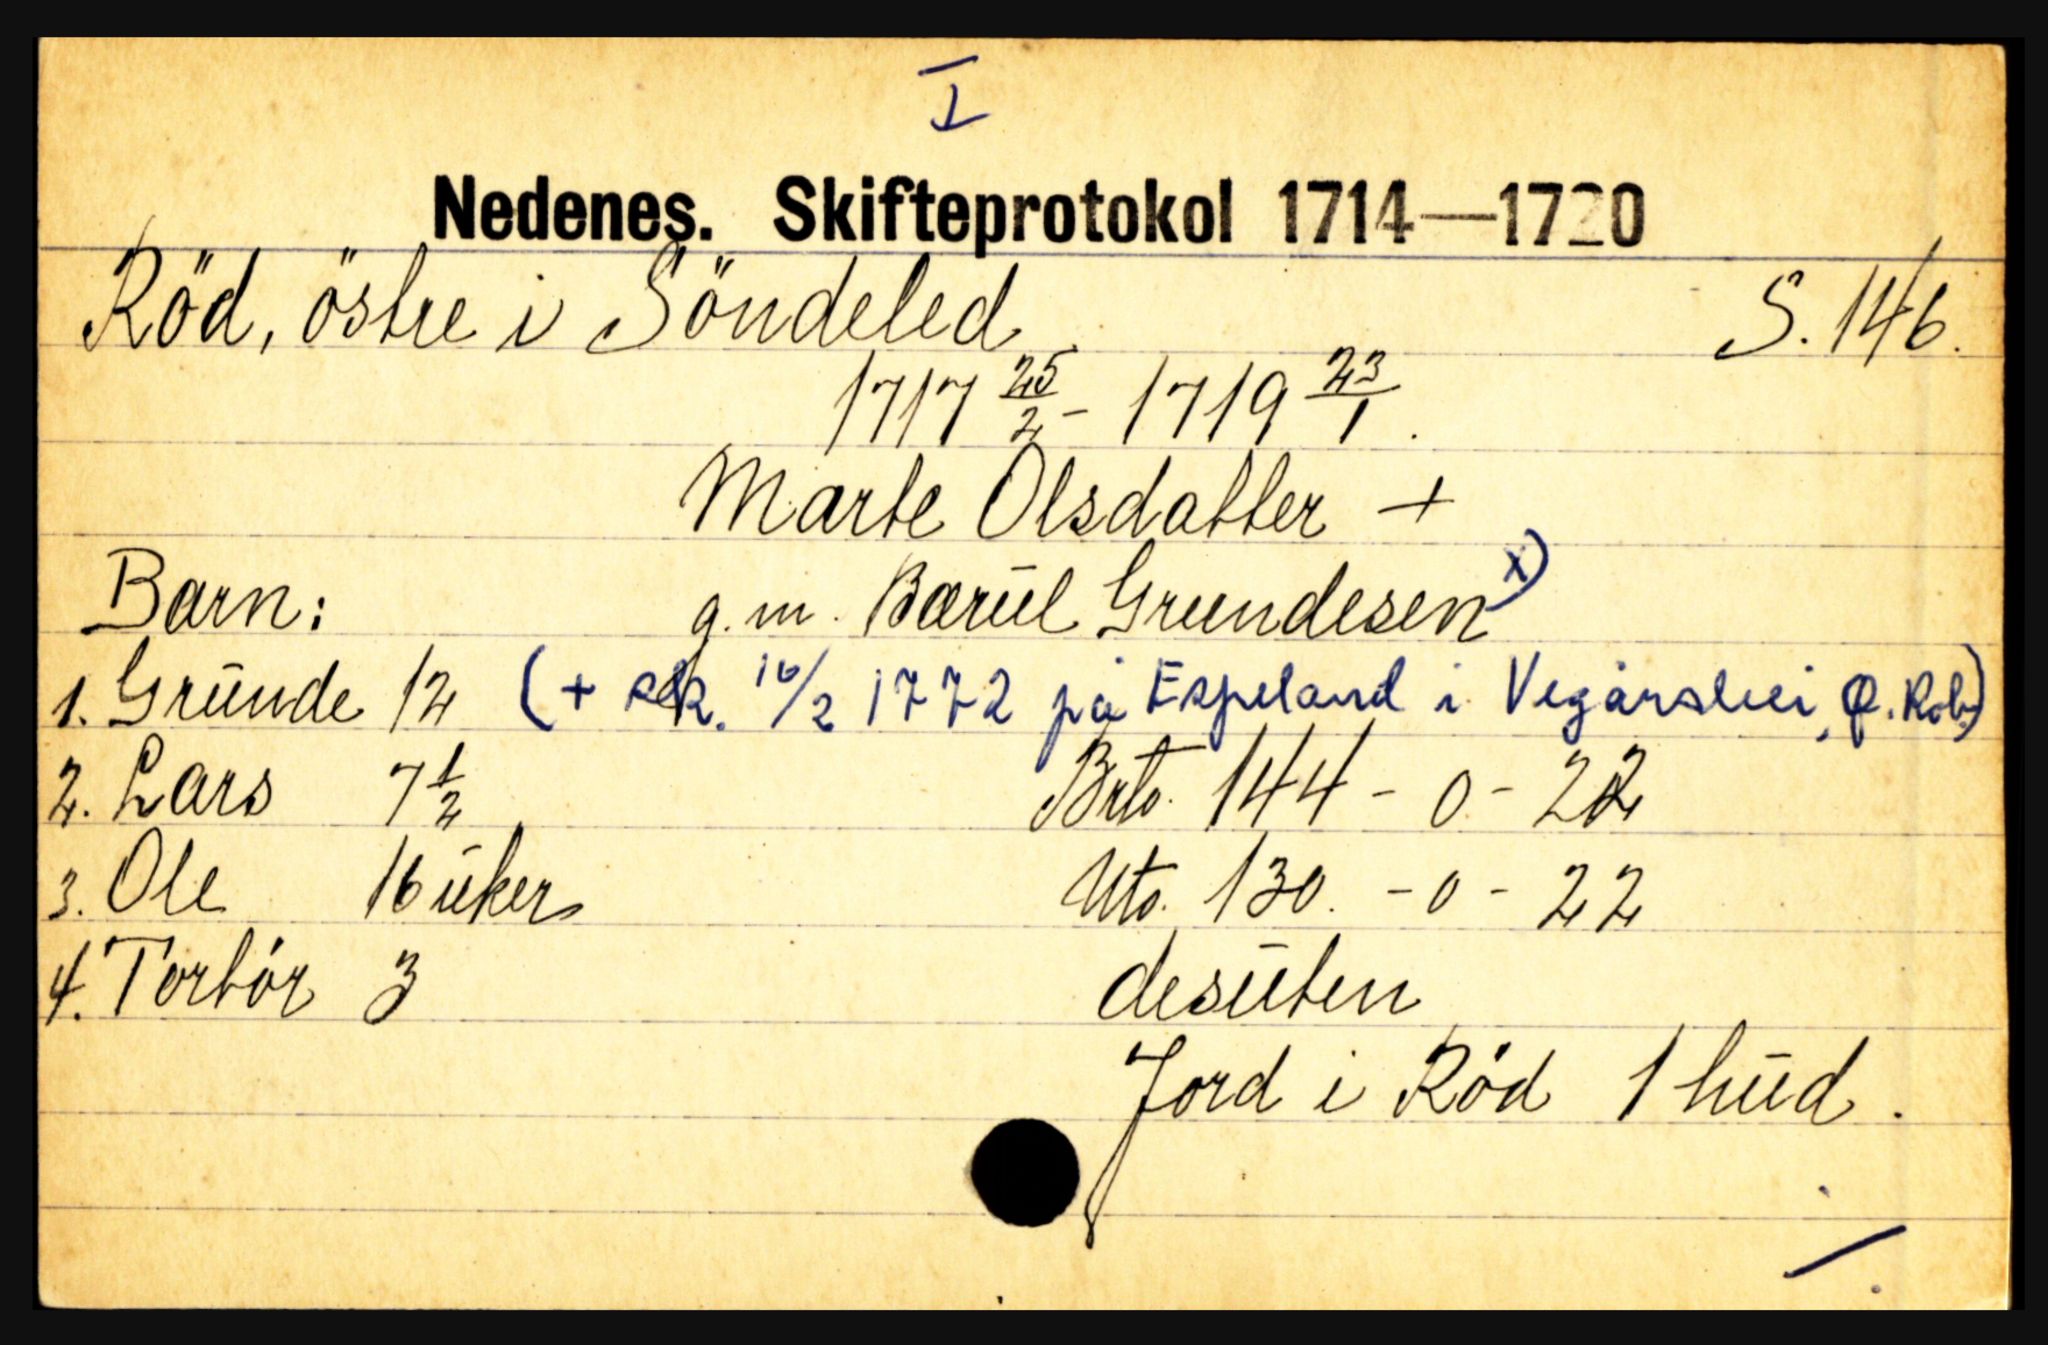 I
Nedenes. Skifteprotokol 1714—1720
Röd, östre i Söndeled S. 146.
1717 25/2 - 1719 23/1.
Marte Olsdatter +
Barn: g.m. Bærul Grundesen x)
1. Grunde 12 (+ sk. 16/2 1772 på Espeland i Vegårshei, Q. Rob.)
2. Lars 7 1/2 Brto. 144 - 0 - 22
3. Ole 16 uker Nto. 130. - 0 - 22
4. Torbör 3 desuten
Jord i Röd 1 hud.